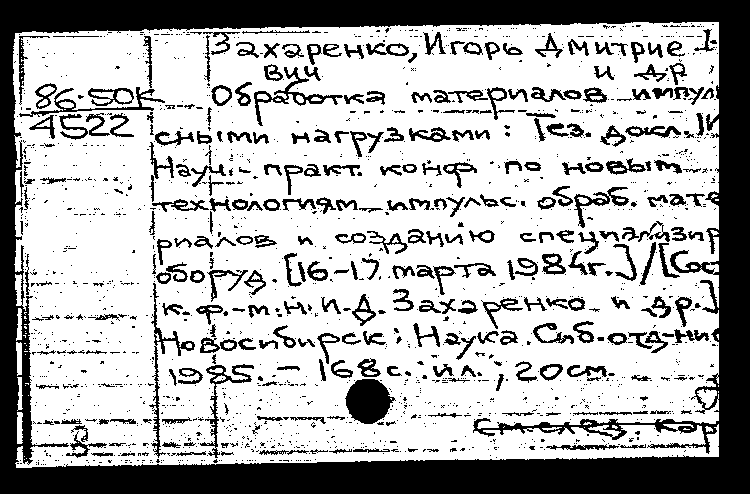 Захаренко, Игорь Дмитрие
вич и др
86-50К Обработка материалов импуль
4522 сными нагрузками: Тез. докл.
Науч.-практ. конф по новым
технологиям импульс. обраб. мате
риалов и созданию специализир
оборуд. [16-17 марта 1984г.]/[Сос
к.ф.-м.н. И.Д. Захаренко и др.]
Новосибирск: Наука. Сиб. отд-ние
1985. - 168с.: ил.; 20см.
см. след. кар
В